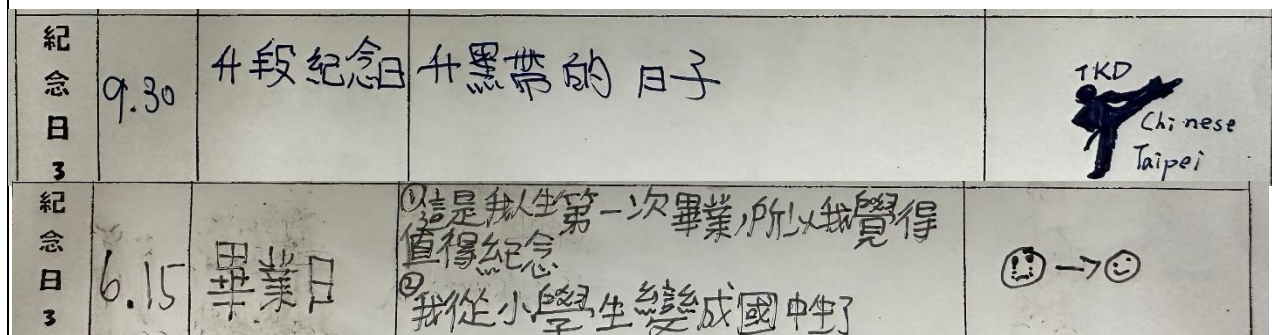 紀念日3
9.30
升段紀念日
升黑帶的日子
TKD
Chinese
Taipei
紀念日3
6.15
畢業日
①這是我人生第一次畢業,所以我覺得
值得紀念
②
我從小學生變成國中生了